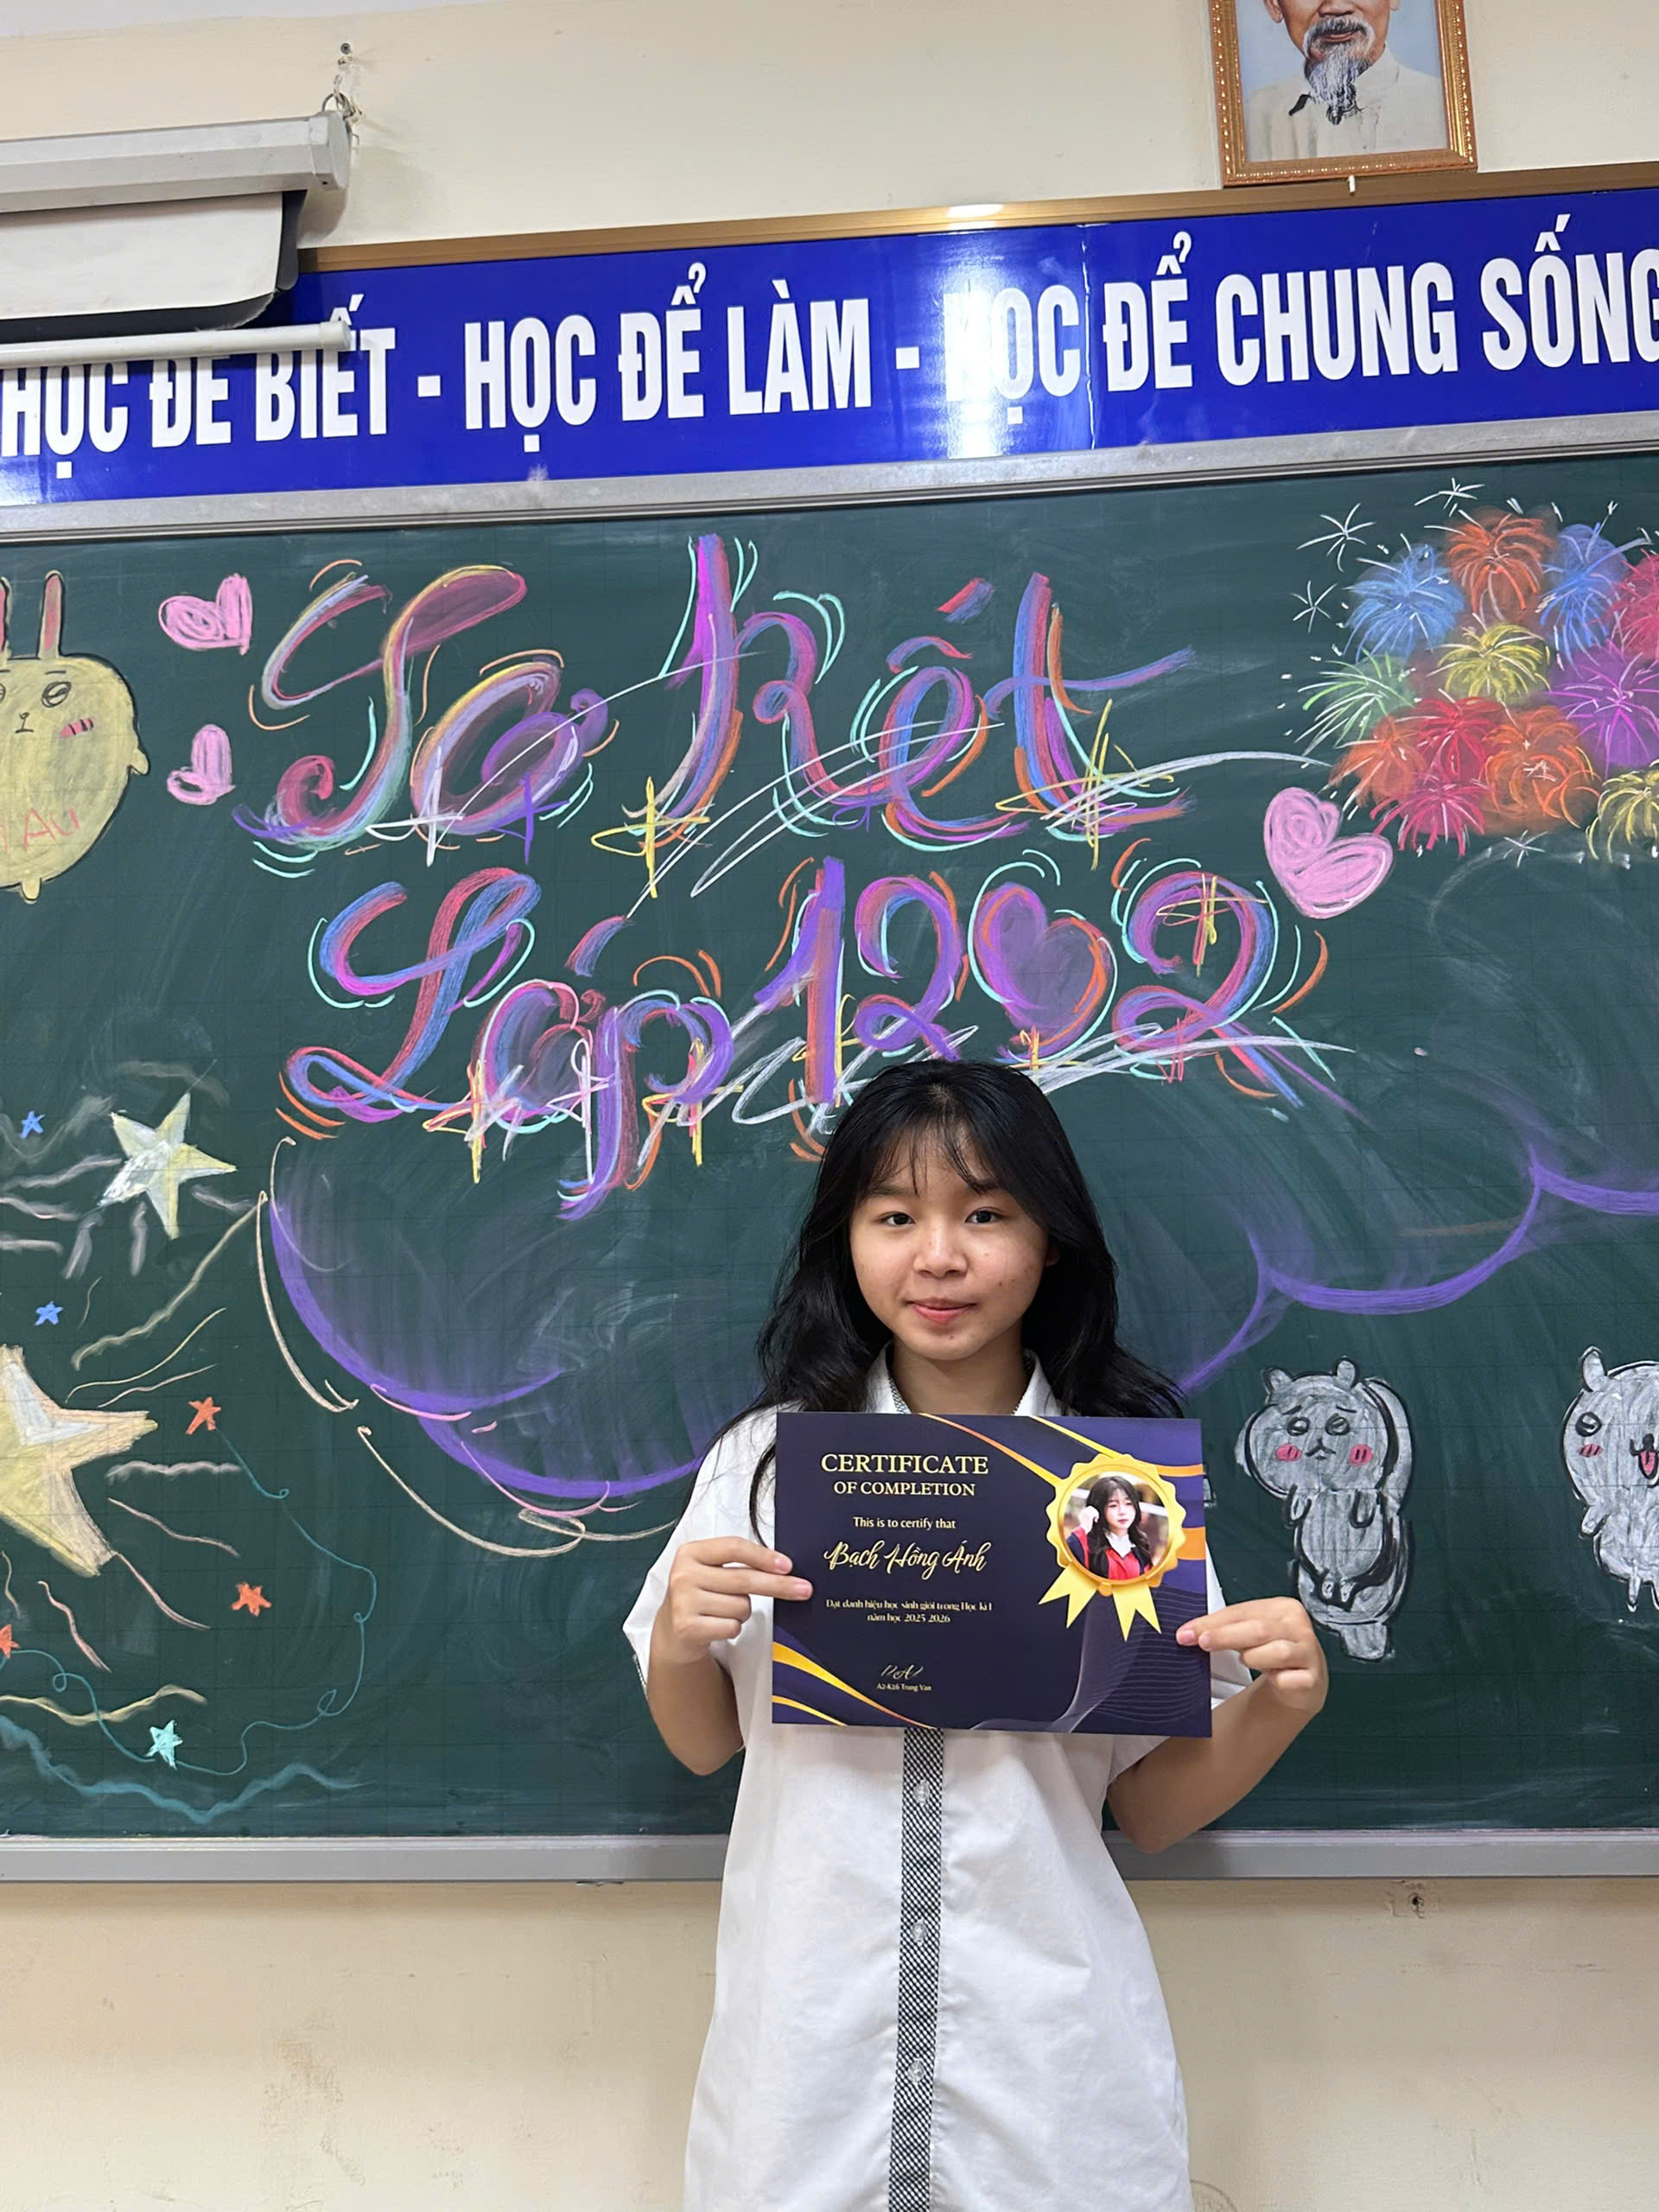 HỌC ĐỂ BIẾT - HỌC ĐỂ LÀM - HỌC ĐỂ CHUNG SỐNG
Sơ kết
Lớp 1202
CERTIFICATE
OF COMPLETION
This is to certify that
Bạch Hồng Ánh
Đạt danh hiệu học sinh giỏi trong Học kì I
năm học 2025-2026
A2-K26 Trung Van